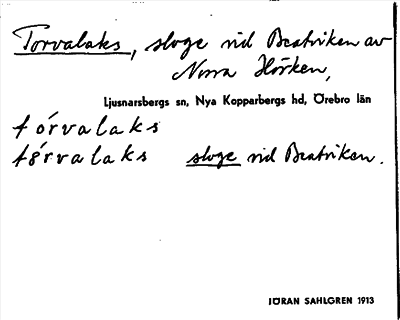 Torvalaks, sloge vid Beatriken av
Norra Hörken,
Ljusnarsbergs sn, Nya Kopparbergs hd, Örebro län
tórvalaks
tórvalaks sloge vid Beatriken.
JÖRAN SAHLGREN 1913